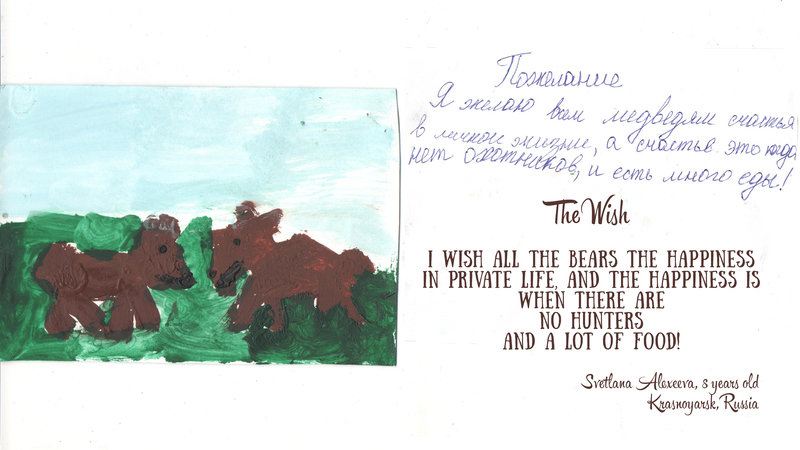 Пожелание
Я желаю вам медведям счастья
в личной жизни, а счастье это когда
нет охотников, и есть много еды!
The Wish
I WISH ALL THE BEARS THE HAPPINESS
IN PRIVATE LIFE, AND THE HAPPINESS IS
WHEN THERE ARE
NO HUNTERS
AND A LOT OF FOOD!
Svetlana Alexeeva, 8 years old
Krasnoyarsk, Russia